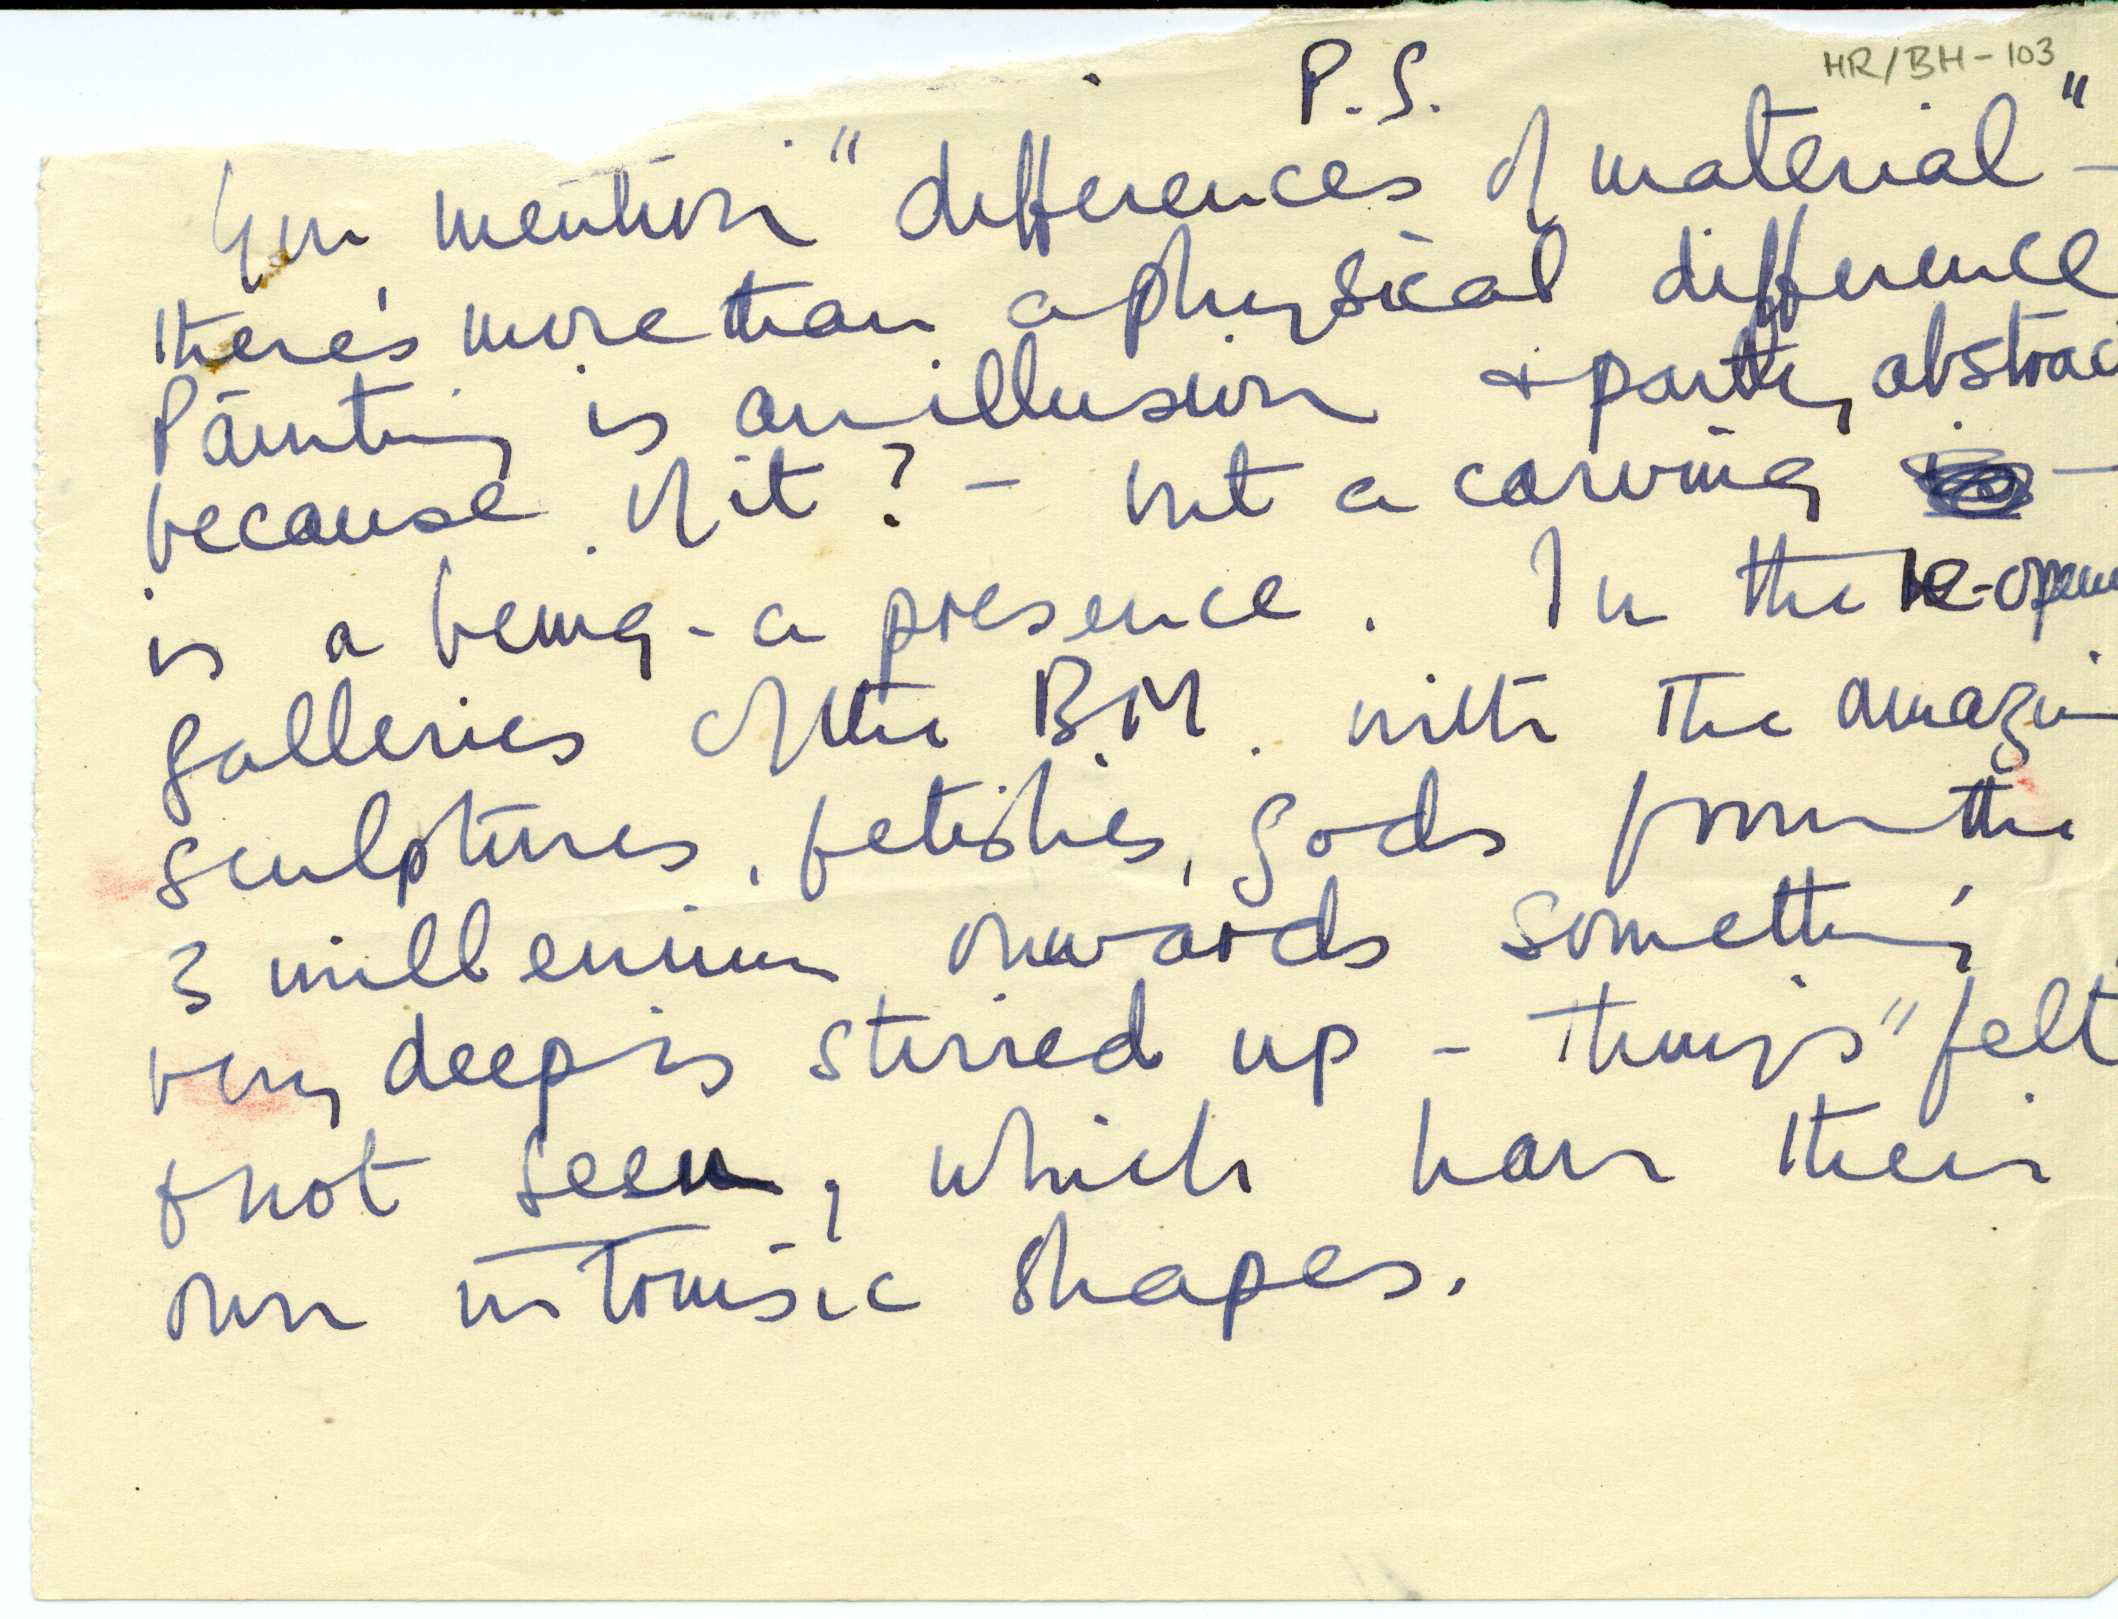 HR/BH-103
P.S.
You mention "differences of material" -
there's more than a physical difference
Painting is an illusion & partly abstrac
because of it? - but a carving
is a being - a presence. In the re-open
galleries of the B.M. with the amazin
sculptures, fetishes, gods from the
3 millenium onwards something
very deep is stirred up - things "felt
& not seen, which have their
own intrinsic shapes.